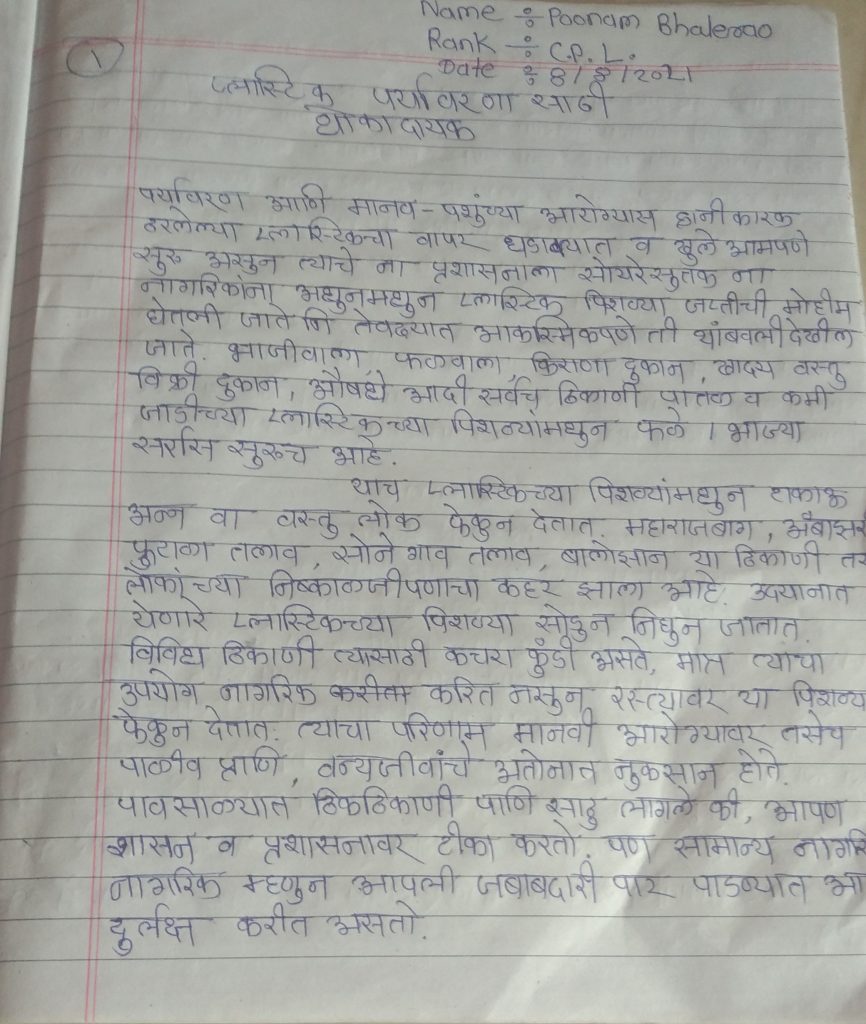 Name ÷ Poonam Bhalerao
Rank ÷ C.P.L.
Date ÷ 8/8/2021
1
प्लास्टिक पर्यावरणा साठी
धोकादायक
पर्यावरण आणि मानव - पशुंच्या आरोग्यास हानीकारक
ठरलेल्या प्लास्टिकचा वापर धडाक्यात व खुले आमपणे
सुरु असुन त्याचे ना प्रशासनाला सोयरेसुतक ना
नागरिकांना अधुनमधुन प्लास्टिक पिशव्या जप्तीची मोहीम
घेतली जाते नि तेवढ्यात आकस्मिकपणे ती थांबवली देखील
जाते. भाजीवाला, फळवाला, किराणा दुकान, खाद्य वस्तु
विक्री दुकान, औषधे आदी सर्वच ठिकाणी पातळ व कमी
जाडीच्या प्लास्टिकच्या पिशव्यांमधुन फळे / भाज्या
सर्रास सुरुच आहे.
याच प्लास्टिकच्या पिशव्यांमधुन टाकाऊ
अन्न वा वस्तु लोक फेकुन देतात. महाराजबाग,
फुटाळा तलाव, सोनेगाव तलाव, बालोद्यान या ठिकाणी तर
लोकांच्या निष्काळजीपणाचा कहर झाला आहे. उदयानात
येणारे प्लास्टिकच्या पिशव्या सोडुन निघुन जातात.
विविध ठिकाणी त्यासाठी कचरा कुंडी असते, मात्र त्यांचा
उपयोग नागरिक करित नसुन रस्त्यावर या पिशव्य
फेकुन देतात. त्याचा परिणाम मानवी आरोग्यावर तसेच
पाळीव प्राणि, वन्यजीवांचे अतोनात नुकसान होते.
पावसाळ्यात ठिकठिकाणी पाणि साचु लागले की, आपण
शासन व प्रशासनावर टीका करतो. पण सामान्य नागरि
नागरिक म्हणुन आपली जबाबदारी पार पाडण्यात आ
दुर्लक्ष करीत असतो.